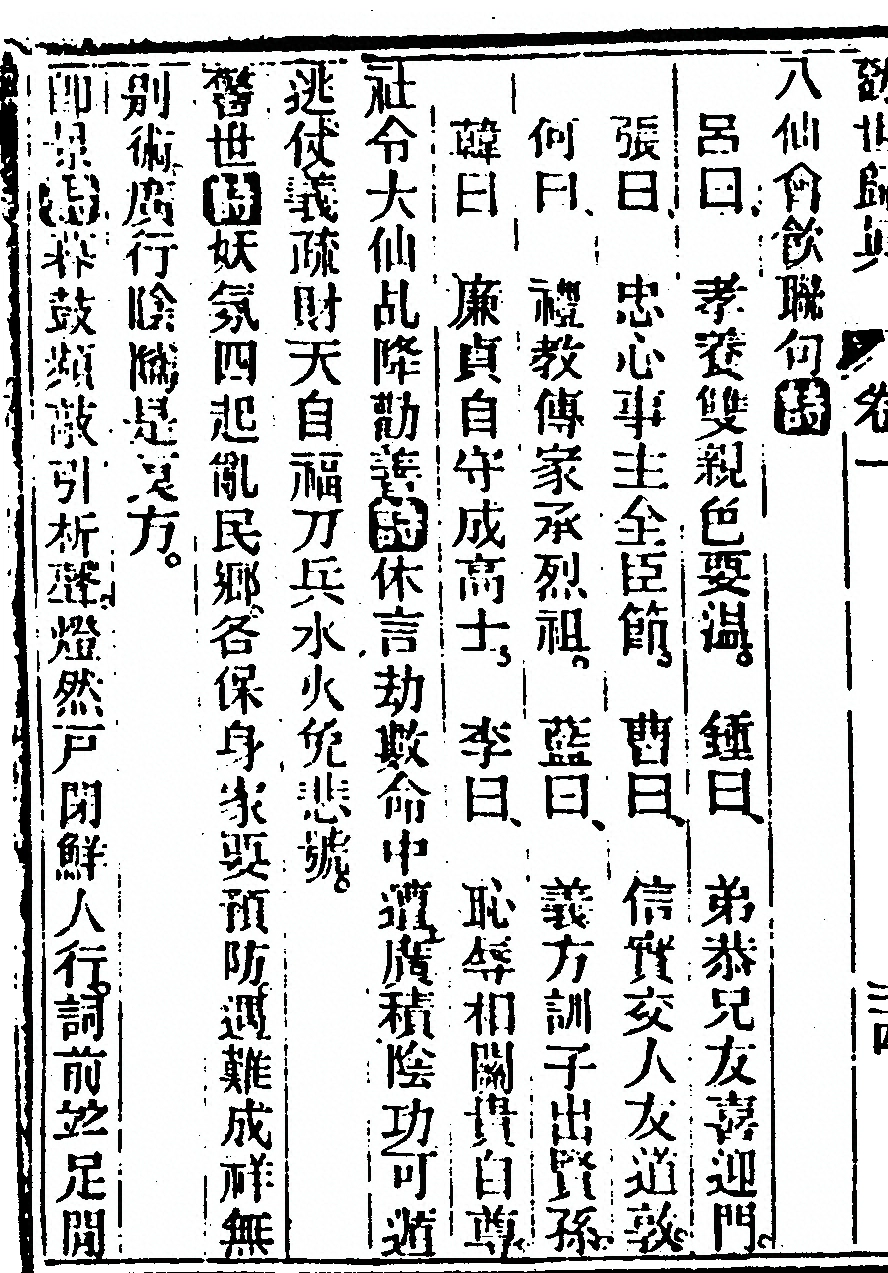 勸世歸真 卷一 三四
八仙會飲聯句詩
呂曰、孝養雙親色要温。鍾曰、弟恭兄友喜迎門。
張曰、忠心事主全臣節。曹曰、信實交人友道敦。
何曰、禮教傳家承烈祖。藍曰、義方訓子出賢孫。
韓曰 廉貞自守成高士。李曰、恥辱相關貴自尊。
社令大仙乩降勸善詩休言劫數命中遭廣積陰功可遁
逃仗義疏財天自福刀兵水火免悲號。
警世詩妖氛四起亂民鄉。各保身家要預防。遇難成祥無
別術廣行陰隲是良方。
即景詩暮鼓頻敲引析聲。燈然戸閉鮮人行。詞前竝足閒